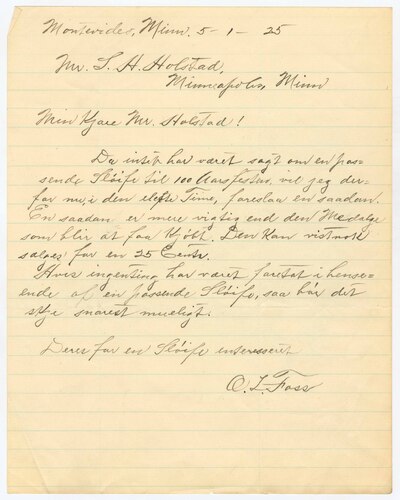 Montevideo, Minn. 5-1-25
Mr. S. H. Holstad,
Minneapolis, Minn
Min Kjære Mr. Holstad!
Da intet har været sagt om en pas-
sende Slöife til 100 Aarsfesten, vil jeg der-
for nu i den elefte Time, foreslaa en saadan.
En saadan er mere vigtig end den Medalge
som blir at faa Kjöbt. Den kan vistnok
salges for en 25 Cents.
Hvis ingenting har været foretat i hense-
ende af en passende Slöife, saa bör det
skje snarest mueligt.
Deres for en Slöife interesseret
O. L. Foss